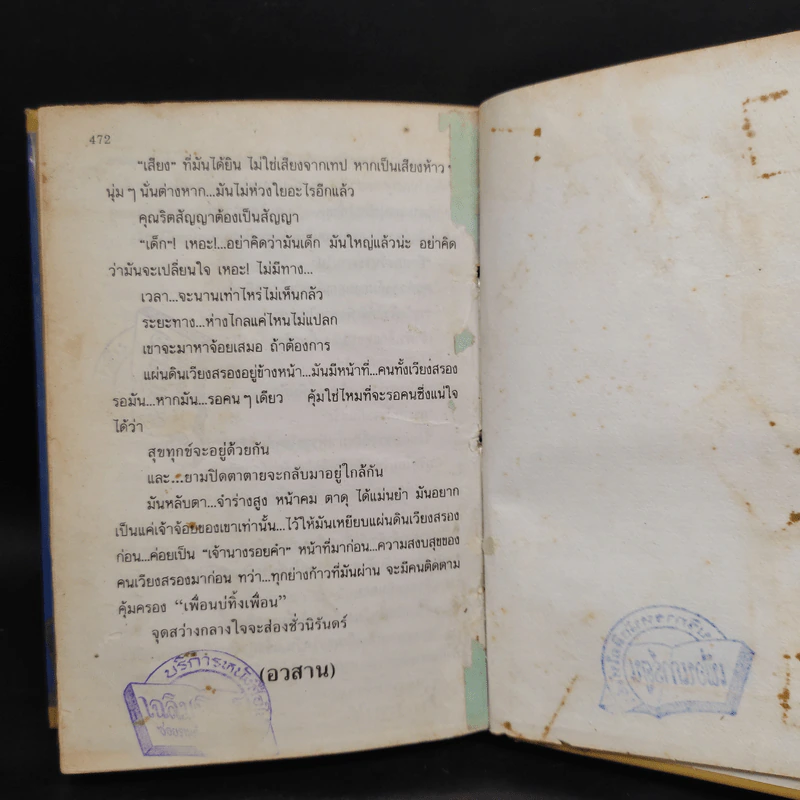 472
"เสียง" ที่มันได้ยิน ไม่ใช่เสียงจากเทป หากเป็นเสียงห้าว ๆ
นุ่ม ๆ นั่นต่างหาก...มันไม่ห่วงใยอะไรอีกแล้ว
คุณริตสัญญาต้องเป็นสัญญา
"เด็ก"! เหอะ!...อย่าคิดว่ามันเด็ก มันใหญ่แล้วน่ะ อย่าคิด
ว่ามันจะเปลี่ยนใจ เหอะ! ไม่มีทาง...
เวลา...จะนานเท่าไหร่ไม่เห็นกลัว
ระยะทาง...ห่างไกลแค่ไหนไม่แปลก
เขาจะมาหาจ้อยเสมอ ถ้าต้องการ
แผ่นดินเวียงสรองอยู่ข้างหน้า...มันมีหน้าที่...คนทั้งเวียงสรอง
รอมัน...หากมัน...รอคน ๆ เดียว คุ้มใช่ไหมที่จะรอคนซึ่งแน่ใจ
ได้ว่า
สุขทุกข์จะอยู่ด้วยกัน
และ...ยามปิดตาตายจะกลับมาอยู่ใกล้กัน
มันหลับตา...จำร่างสูง หน้าคม ตาดุ ได้แม่นยำ มันอยาก
เป็นแค่เจ้าจ้อยของเขาเท่านั้น...ไว้ให้มันเหยียบแผ่นดินเวียงสรอง
ก่อน...ค่อยเป็น "เจ้านางรอยคำ" หน้าที่มาก่อน...ความสงบสุขของ
คนเวียงสรองมาก่อน ทว่า...ทุกย่างก้าวที่มันผ่าน จะมีคนติดตาม
คุ้มครอง "เพื่อนบ่ทิ้งเพื่อน"
จุดสว่างกลางใจจะส่องชั่วนิรันดร์
(อวสาน)
บริการหนังสือ